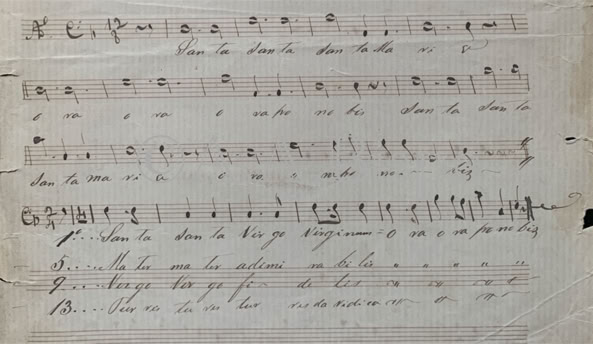 San ta San ta San ta Ma ri a
o ra o ra o ra po no bis San ta San ta
San ta ma ri a o ra o ra po no bis
1ª.... San ta San ta Vir go Virginum = O ra o ra po no biz
5.... Ma ter ma ter adimi ra bi lis " " " " "
9.... Vir go Vir go fi de lis
13.... Tur ris tu res tur res da vidica